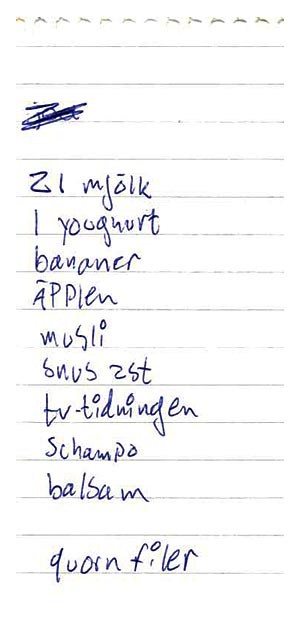 2l mjölk
1 youghurt
bananer
äpplen
musli
snus 2st
tv-tidningen
schampo
balsam
quorn filer